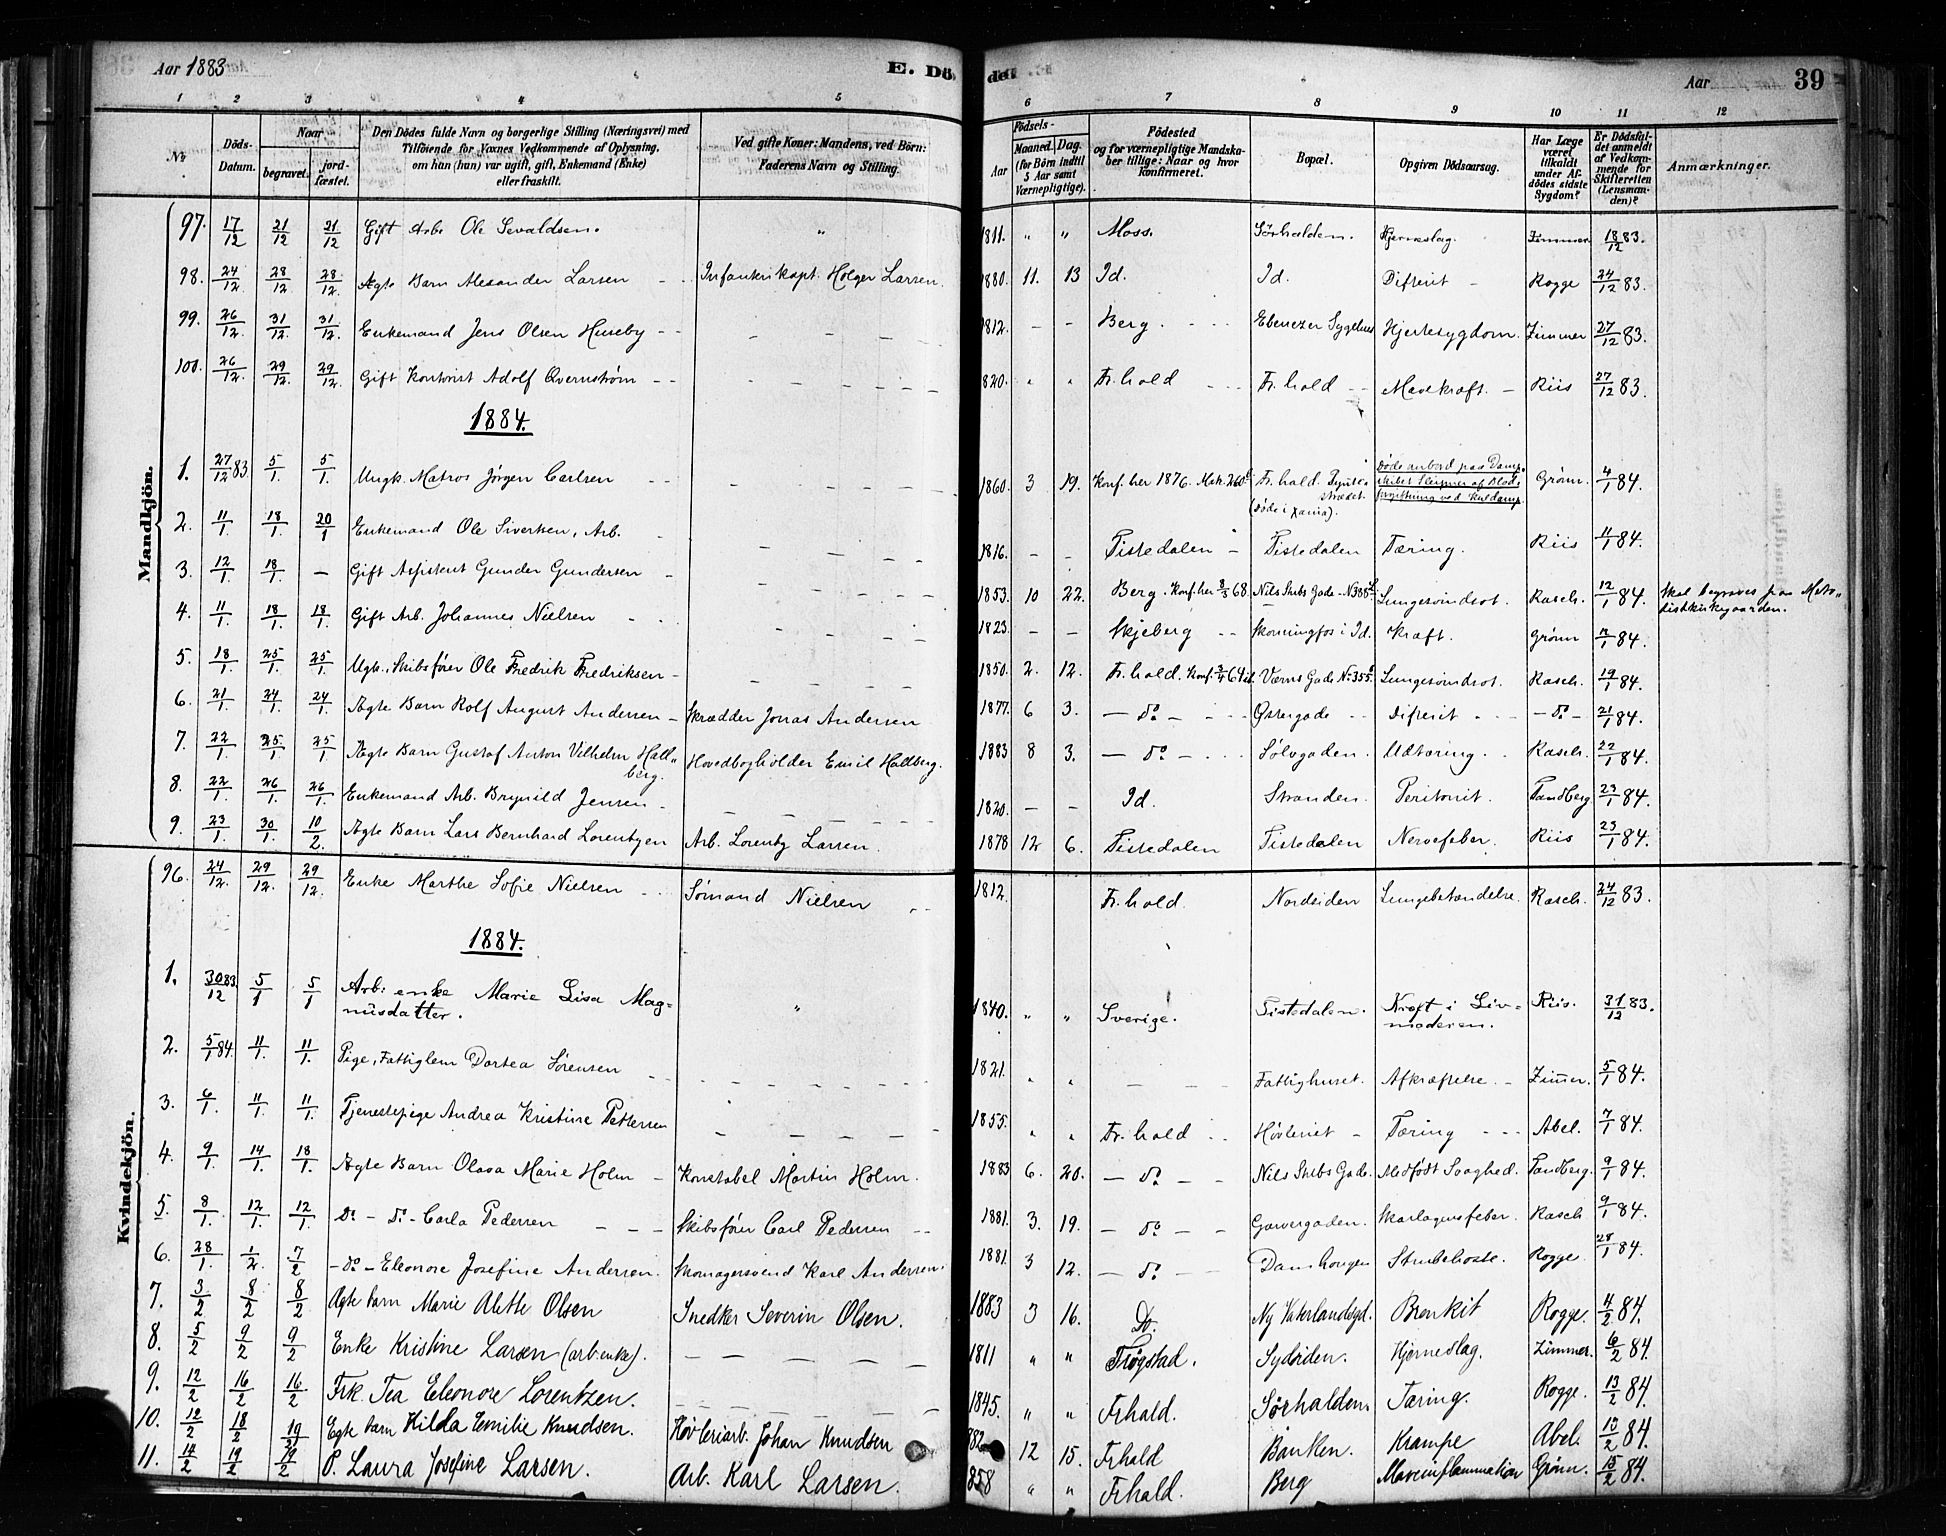 Aar 1883
E. Dö
de.
Aar
39
1 2 3 4 5 6 7 8 9 10 11 12
No
Döds-Datum.
Naar
begravet.
jord-fæstet.
Den Dödes fulde Navn og borgerlige Stilling (Næringsvei) med
Tilföiende for Voxnes Vedkommende af Oplysning,
om han (hun) var ugift, gift, Enkemand (Enke)
eller fraskilt.
Ved gifte Koner: Mandens, ved Börn:
Faderens Navn og Stilling.
Födsels-
Aar
Maaned.
Dag.
(for Börn indtil
5 Aar samt
Værnepligtige).
Födested
og for værnepligtige Mandska-
ber tillige: Naar og hvor
konfirmeret.
Bopæl.
Opgiven Dödsaarsag.
Har Læge
været
tilkaldt
under Af-
dödes sidste
Sygdom?
Er Dödsfal-
det anmeldt
af Vedkom-
mende for
Skifteretten
(Lensman-
den)?
Anmærkninger.
Mandkjön.
97. 17/12 21/12 21/12 Gift Arb. Ole Sevaldsen. " 1811. " " Moss. Sörhalden. Hjerneslag. Zimmer 18/12 83.
98. 24/12 28/12 28/12 Ægte Barn Alexander Larsen Infanterikapt. Holger Larsen. 1880. 11. 13 Id. Id. Difterit Rogge 24/12 83.
99. 26/12 31/12 31/12 Enkemand Jens Olsen Huseby 1812. Berg. Ebenezer Sygehus Hjertesygdom. Zimmer 27/12 83.
100. 26/12 29/12 29/12 Gift Kontorist Adolf Qvernström 1820. " " Fr.hald Fr.hald Mavekræft. Riis 27/12 83
1884.
1. 27/12 83 5/1 5/1 Ungk. Matros Jørgen Carlsen 1860. 3 19. Konf. her 1876. Fr.hald. (døde i Xania). Døde ombord paa Damp- Grønn. 4/1 84.
skibet Sleipner af Blod-
forgiftning ved Kuldamp.
2. 11/1 18/1 20/1 Enkemand Ole Siversen, Arb. 1816. Tistedalen Tistedalen Tæring. Riis 11/1 84.
3. 12/1 18/1 — Gift Assistent Gunder Gundersen 1853. 10 22. Berg. Konf. her 68. Nils Stubs Gade Lungesvindsot. Rasch. 12/1 84. Skal begraves paa Meto-
distkirkegaarden.
4. 11/1 18/1 18/1 Gift Arb. Johannes Nielsen 1823. Skjeberg Skonningfos i Id. Kræft. Grønn 12/1 84.
5. 18/1 25/1 25/1 Ugk. Skibsfører Ole Fredrik Fredriksen 1850. 2. 12. Fr.hald. Konf. Værns Gade No 355. Lungesvindsot. Rasch. 19/1 84.
6. 21/1 24/1 24/1 Ægte Barn Rolf August Andersen Skrædder Jonas Andersen 1877. 6 3. — do — Østergade Difterit — do — 21/1 84.
7. 22/1 25/1 25/1 Ægte Barn Gustaf Anton Vilhelm Hall-
berg. Hovedbogholder Emil Hallberg. 1883 8 3. — do — Sølvgaden. Udtæring. Rasch. 22/1 84.
8. 22/1 26/1 26/1 Enkemand Arb. Brynild Jensen 1820. Id. Stranden. Peritonit. Tandberg 23/1 84.
9. 23/1 30/1 10/2 Ægte Barn Lars Bernhard Lorentzen Arb. Lorentz Larsen. 1878 12 6. Tistedalen Tistedalen Nervefeber. Riis 23/1 84.
Kvindekjön.
96. 24/12 29/12 29/12 Enke Marthe Sofie Nielsen Sømand Nielsen 1812. Fr.hald. Nordsiden Lungebetændelse. Rasch. 24/12 83.
1884.
1. 30/12 83 5/1 5/1 Arb: enke Marie Lisa Mag-
nusdatter. " 1840. " " Sverige. Tistedalen. Kræft i Liv-
moderen. Riis. 31/12 83.
2. 5/1 84 11/1 11/1 Pige, Fattiglem Dortea Sørensen 1821. " " — Fattighuset. Afkræftelse. Zimmer. 5/1 84.
3. 6/1 11/1 11/1 Tjenestepige Andrea Kristine Pettersen 1855. " " Fr.hald Høvleriet Tæring Abel. 7/1 84.
4. 9/1 14/1 18/1 Ægte Barn Olava Marie Holm Konstabel Martin Holm. 1883 6. 20. — do — Nils Stubs Gade. Medfødt Svaghed. Tandberg. 9/1 84.
5. 8/1 12/1 12/1 Do — do — Carla Pedersen Skibsfører Carl Pedersen 1881. 3. 19. — do — Garvergaden. Skarlagensfeber. Rasch 9/1 84.
6. 28/1 1/2 7/2 — do — Eleonore Josefine Andersen. Skomagersvend Karl Andersen. 1881. 3 12. — do — Damhaugen Strubehoste. Rogge. 28/1 84.
7. 3/2 8/2 8/2 Ægte barn Marie Alette Olsen Snedker Severin Olsen. 1883 3 16. Do. Ny Vaterlandsgd. Bronkit Rogge. 4/2 84.
8. 5/2 9/2 9/2 Enke Kristine Larsen (arb.enke). 1811 " " Trøgstad. Sydsiden. Hjerneslag. Zimmer. 6/2 84.
9. 12/2 16/2 16/2 Frk Tea Eleonore Lorentzen. 1845. " " Frhald. Sörhalden. Tæring. Rogge. 13/2 84.
10. 12/2 18/2 19/2 Egte barn Hilda Emilie Knudsen. Høvleriarb. Johan Knudsen 882 12 15. Frhald Banken. Krampe Abel. 13/2 84.
11. 14/2 19/2 19/2 P. Laura Josefine Larsen. Arb. Karl Larsen. 858 " " Frhald. Berg Maveinflammation Grønn. 15/2 84.